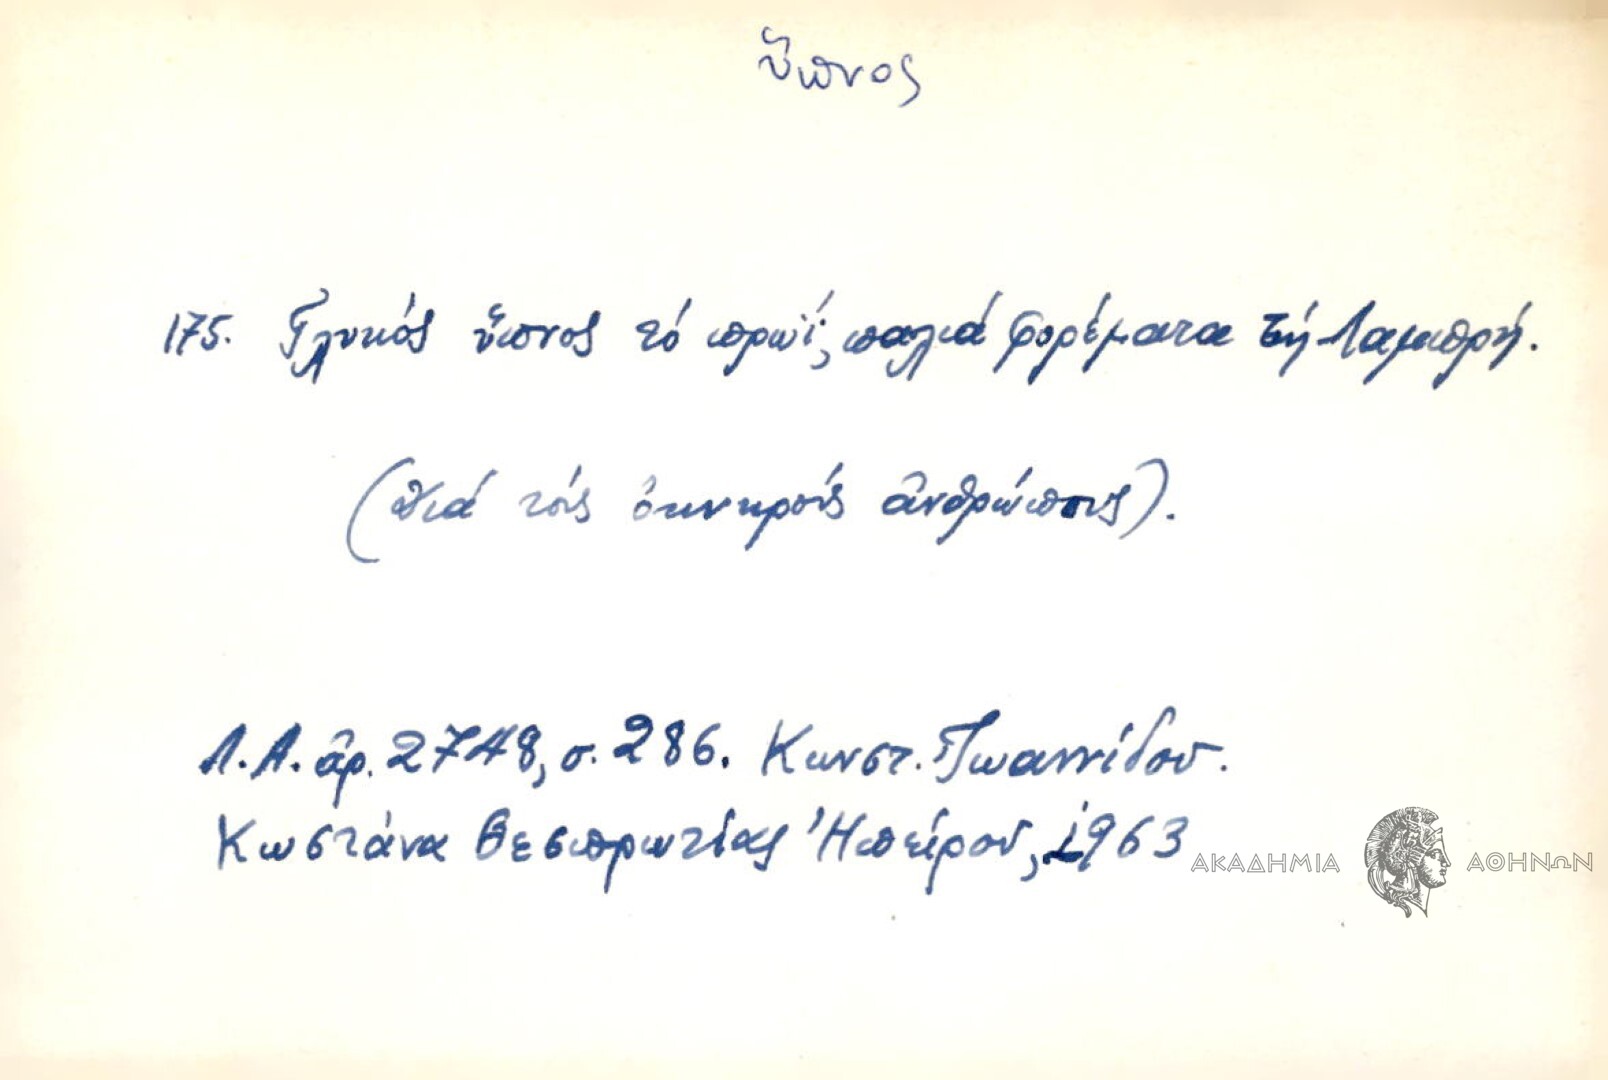 ὕπνος
175. Γλυκός ὕπνος τό πρωΐ, παλιά φορέματα τή Λαμπρή.
(Γιά τούς ὀκνηρούς ἀνθρώπους).
Λ.Α. ἀρ. 2748, σ. 286. Κωνστ. Ἰωαννίδου.
Κωστάνα Θεσπρωτίας Ἠπείρου, 1963
ΑΚΑΔΗΜΙΑ ΑΘΗΝΩΝ